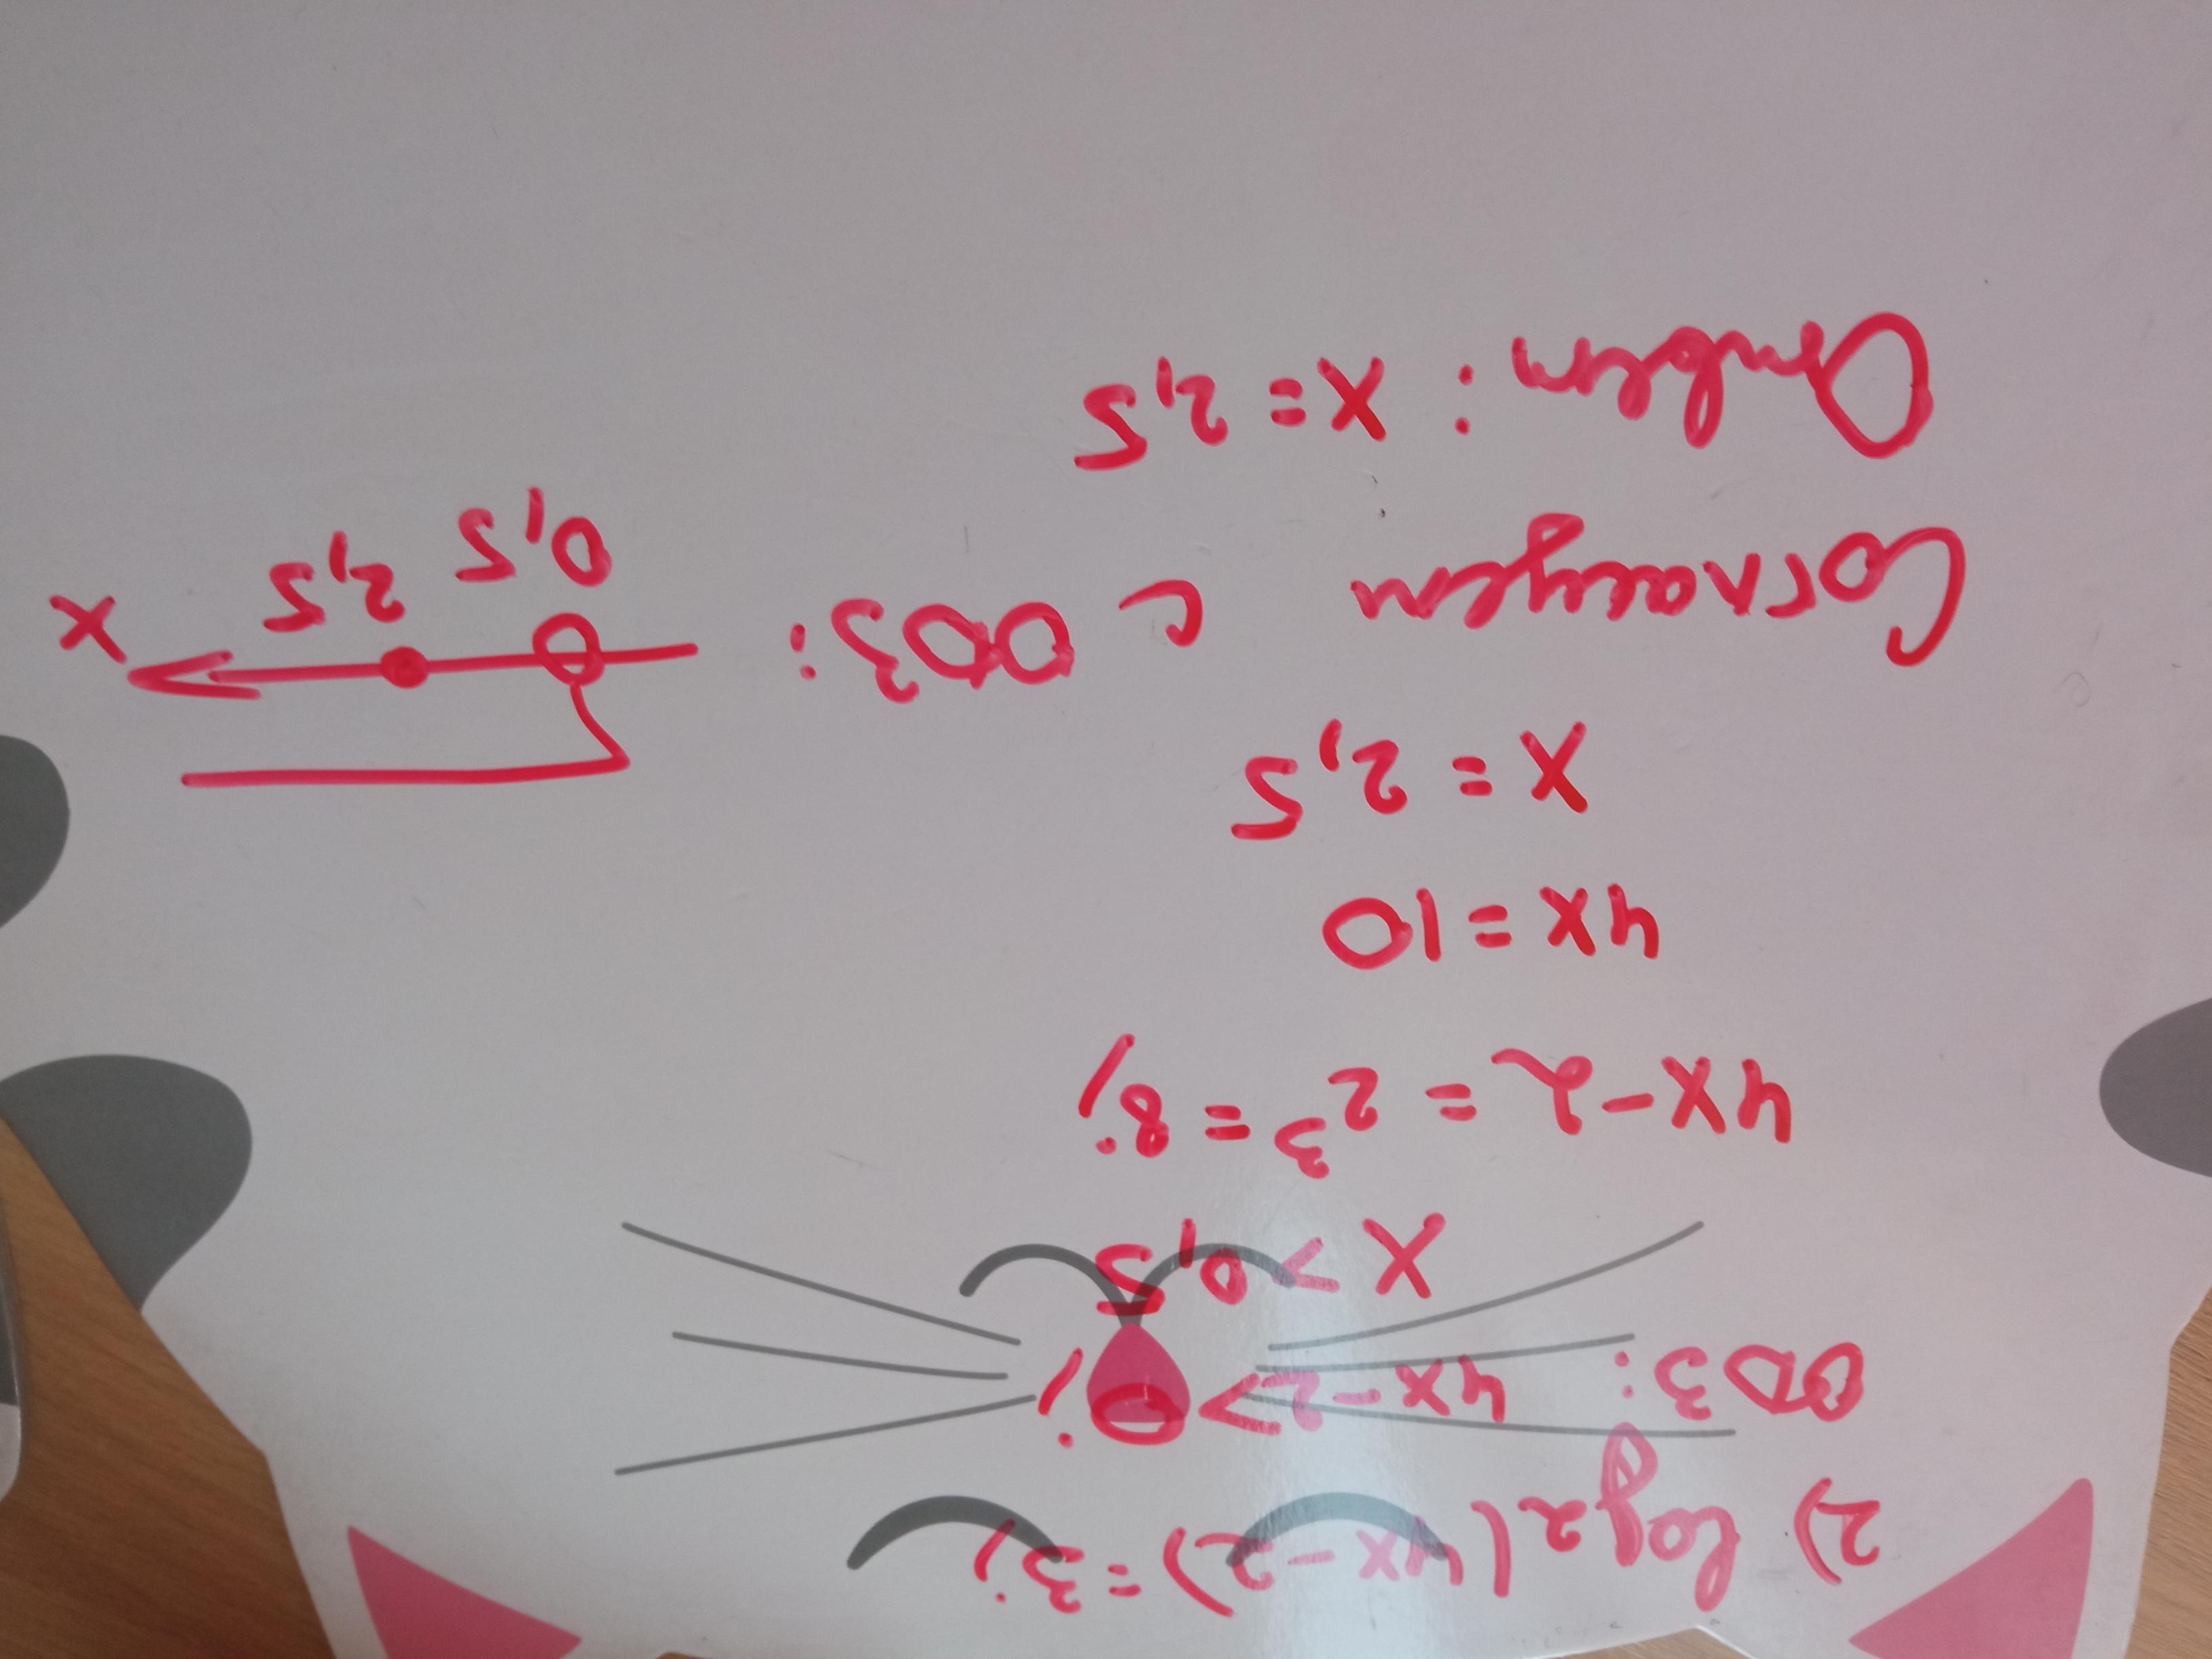 2) log₂(4x-2)=3;
ОДЗ: 4x-2>0;
x>0,5
4x-2=2³=8;
4x=10
x=2,5
Согласуем с ОДЗ: 0,5 2,5 x
Ответ: x=2,5